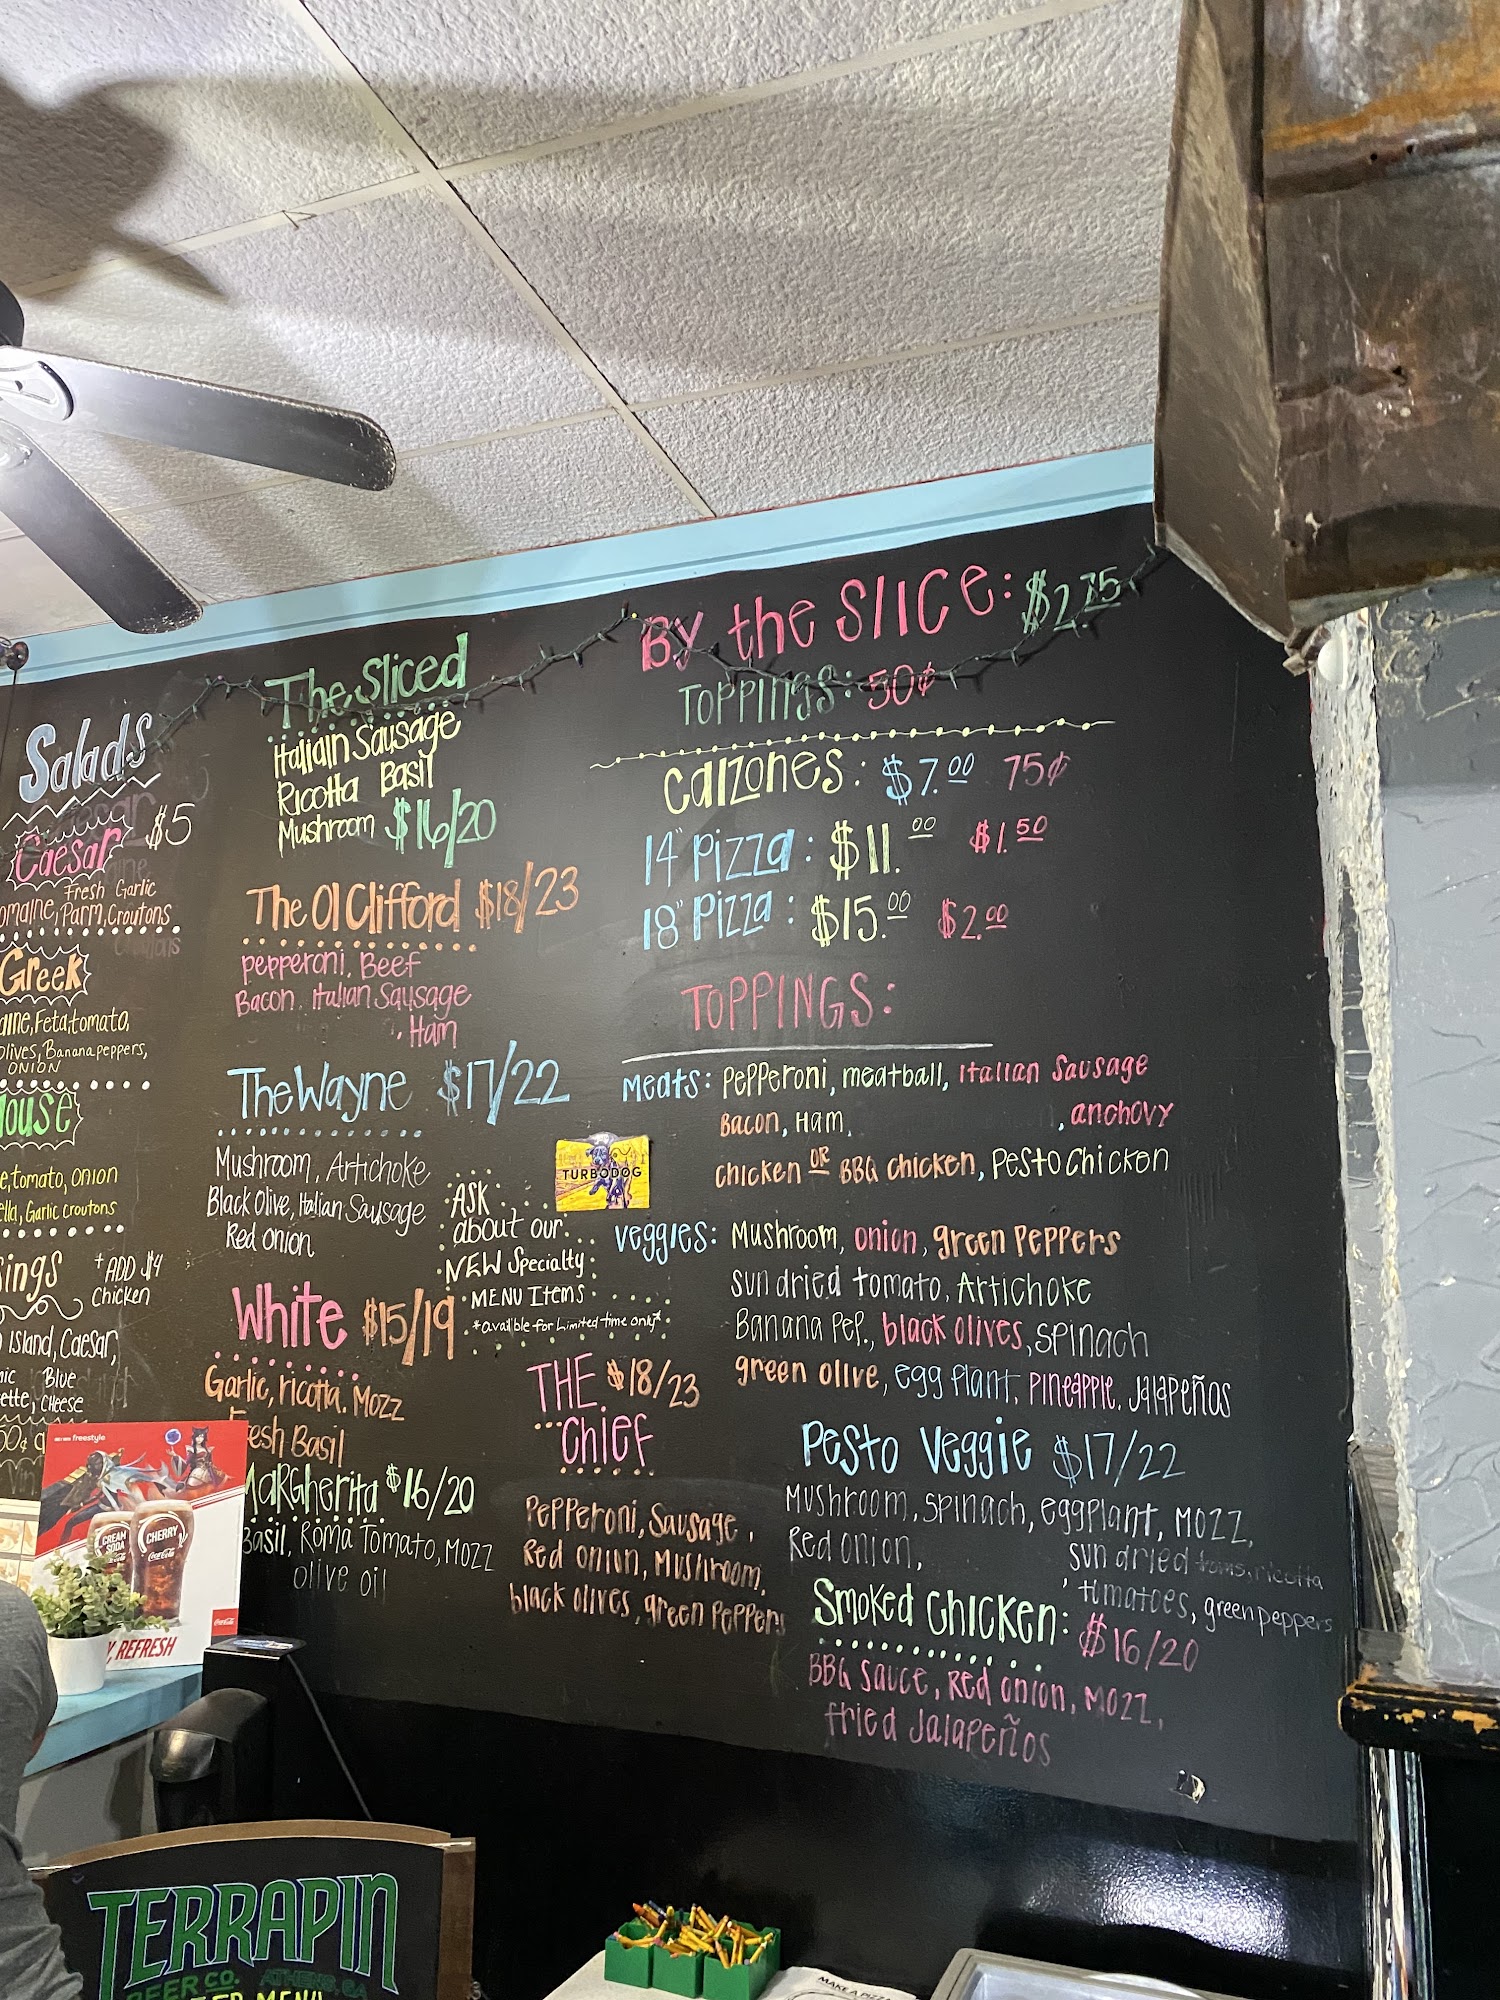 Salads
Caesar $5
Fresh Garlic
Parm, Croutons
Greek
Feta, tomato,
Banana peppers,
ONION
tomato, onion
Garlic croutons
+ ADD $4
Chicken
Island, Caesar,
Blue
CHEESE
The Sliced
Italian Sausage
Ricotta Basil
Mushroom $16/20
The Ol Clifford $18/23
pepperoni, Beef
Bacon, Italian Sausage
Ham
The Wayne $17/22
Mushroom, Artichoke
Black Olive, Italian Sausage
Red onion
ASK
about our
NEW Specialty
MENU Items
TURBODOG
White $15/19
Garlic, ricotta, Mozz
Basil
Margherita $16/20
Basil, Roma Tomato, Mozz
olive oil
THE $18/23
Chief
Pepperoni, Sausage,
Red onion, Mushroom,
black olives, green Peppers
By the Slice: $2.75
Toppings: 50¢
Calzones: $7.00 75¢
14" Pizza: $11.00 $1.50
18" Pizza: $15.00 $2.00
TOPPINGS:
Meats: Pepperoni, meatball, Italian Sausage
Bacon, Ham, , anchovy
chicken OR BBQ chicken, Pesto Chicken
Veggies: Mushroom, onion, green Peppers
sun dried tomato, Artichoke
Banana Pep., black olives, spinach
green olive, egg plant, pineapple, Jalapeños
Pesto Veggie $17/22
Mushroom, spinach, eggplant, Mozz,
Red onion, sun dried toms, ricotta
, tomatoes, green peppers
Smoked Chicken: $16/20
BBQ Sauce, Red onion, Mozz,
fried Jalapeños
freestyle
CREAM
SODA
CHERRY
Coca-Cola
Coca-Cola
REFRESH
TERRAPIN
BEER CO. ATHENS, GA
MENU
MAKE A PIZZA